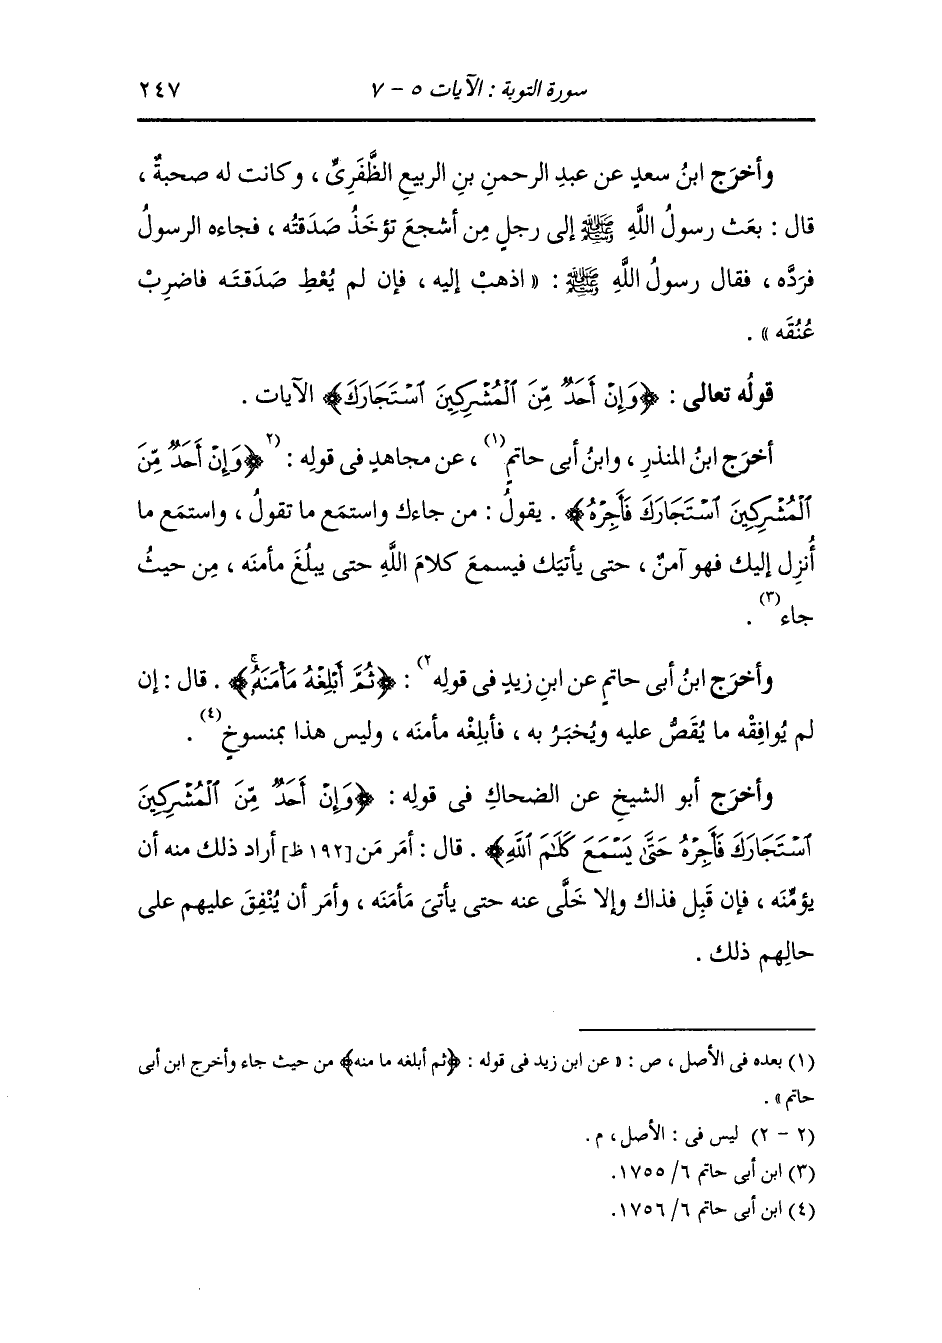 سورة التوبة : الآيات ٥ - ٧
٢٤٧
وأخرَج ابنُ سعدٍ عن عبدِ الرحمنِ بنِ الربيعِ الظَّفَرِىِّ ، وكانت له صحبةٌ ،
قال : بعَث رسولُ اللَّهِ ﷺ إلى رجلٍ مِن أشجعَ تؤخَذُ صَدَقتُه ، فجاءه الرسولُ
فرَدَّه ، فقال رسولُ اللَّهِ ﷺ : « اذهبْ إليه ، فإن لم يُعْطِ صَدَقتَه فاضرِبْ
عُنُقَه » .
قولُه تعالى : ﴿وَإِنْ أَحَدٌ مِّنَ ٱلْمُشْرِكِينَ ٱسْتَجَارَكَ﴾ الآيات .
أخرَج ابنُ المنذرِ ، وابنُ أبى حاتمٍ(١) ، عن مجاهدٍ فى قولِه : (٢﴿وَإِنْ أَحَدٌ مِّنَ
ٱلْمُشْرِكِينَ ٱسْتَجَارَكَ فَأَجِرْهُ﴾ . يقولُ : من جاءك واستمَع ما تقولُ ، واستمَع ما
أُنزِل إليك فهو آمنٌ ، حتى يأتيَك فيسمعَ كلامَ اللَّهِ حتى يبلُغَ مأمنَه ، مِن حيثُ
جاء(٣) .
وأخرَج ابنُ أبى حاتمٍ عن ابنِ زيدٍ فى قولِه٢) : ﴿ثُمَّ أَبْلِغْهُ مَأْمَنَهُۥۚ﴾ . قال : إن
لم يُوافِقْه ما يُقَصُّ عليه ويُخبَرُ به ، فأبلِغْه مأمنَه ، وليس هذا بمنسوخٍ(٤) .
وأخرَج أبو الشيخِ عن الضحاكِ فى قولِه : ﴿وَإِنْ أَحَدٌ مِّنَ ٱلْمُشْرِكِينَ
ٱسْتَجَارَكَ فَأَجِرْهُ حَتَّىٰ يَسْمَعَ كَلَٰمَ ٱللَّهِ﴾ . قال : أمَر مَن [١٩٢ظ] أراد ذلك منه أن
يؤمِّنَه ، فإن قَبِل فذاك وإلا خَلَّى عنه حتى يأتىَ مَأمَنَه ، وأمَر أن يُنْفِقَ عليهم على
حالِهم ذلك .
(١) بعده فى الأصل ، ص : « عن ابن زيد فى قوله : ﴿ثم أبلغه ما منه﴾ من حيث جاء وأخرج ابن أبى
حاتم » .
(٢ - ٢) ليس فى : الأصل ، م .
(٣) ابن أبى حاتم ٦/ ١٧٥٥.
(٤) ابن أبى حاتم ٦/ ١٧٥٦.